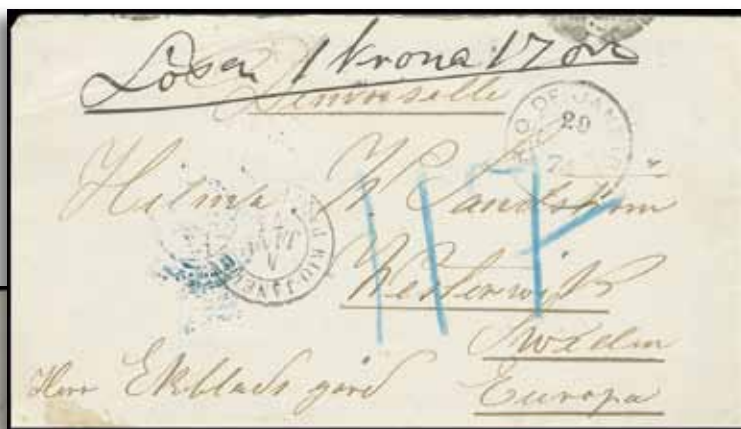 Lösen 1 krona 17 öre
Demoiselle
RIO DE JANEIRO
29
Hilma W Sandström
117
RIO JANEIRO
Westerwik
Sweden
Herr Ekblads gård
Europa